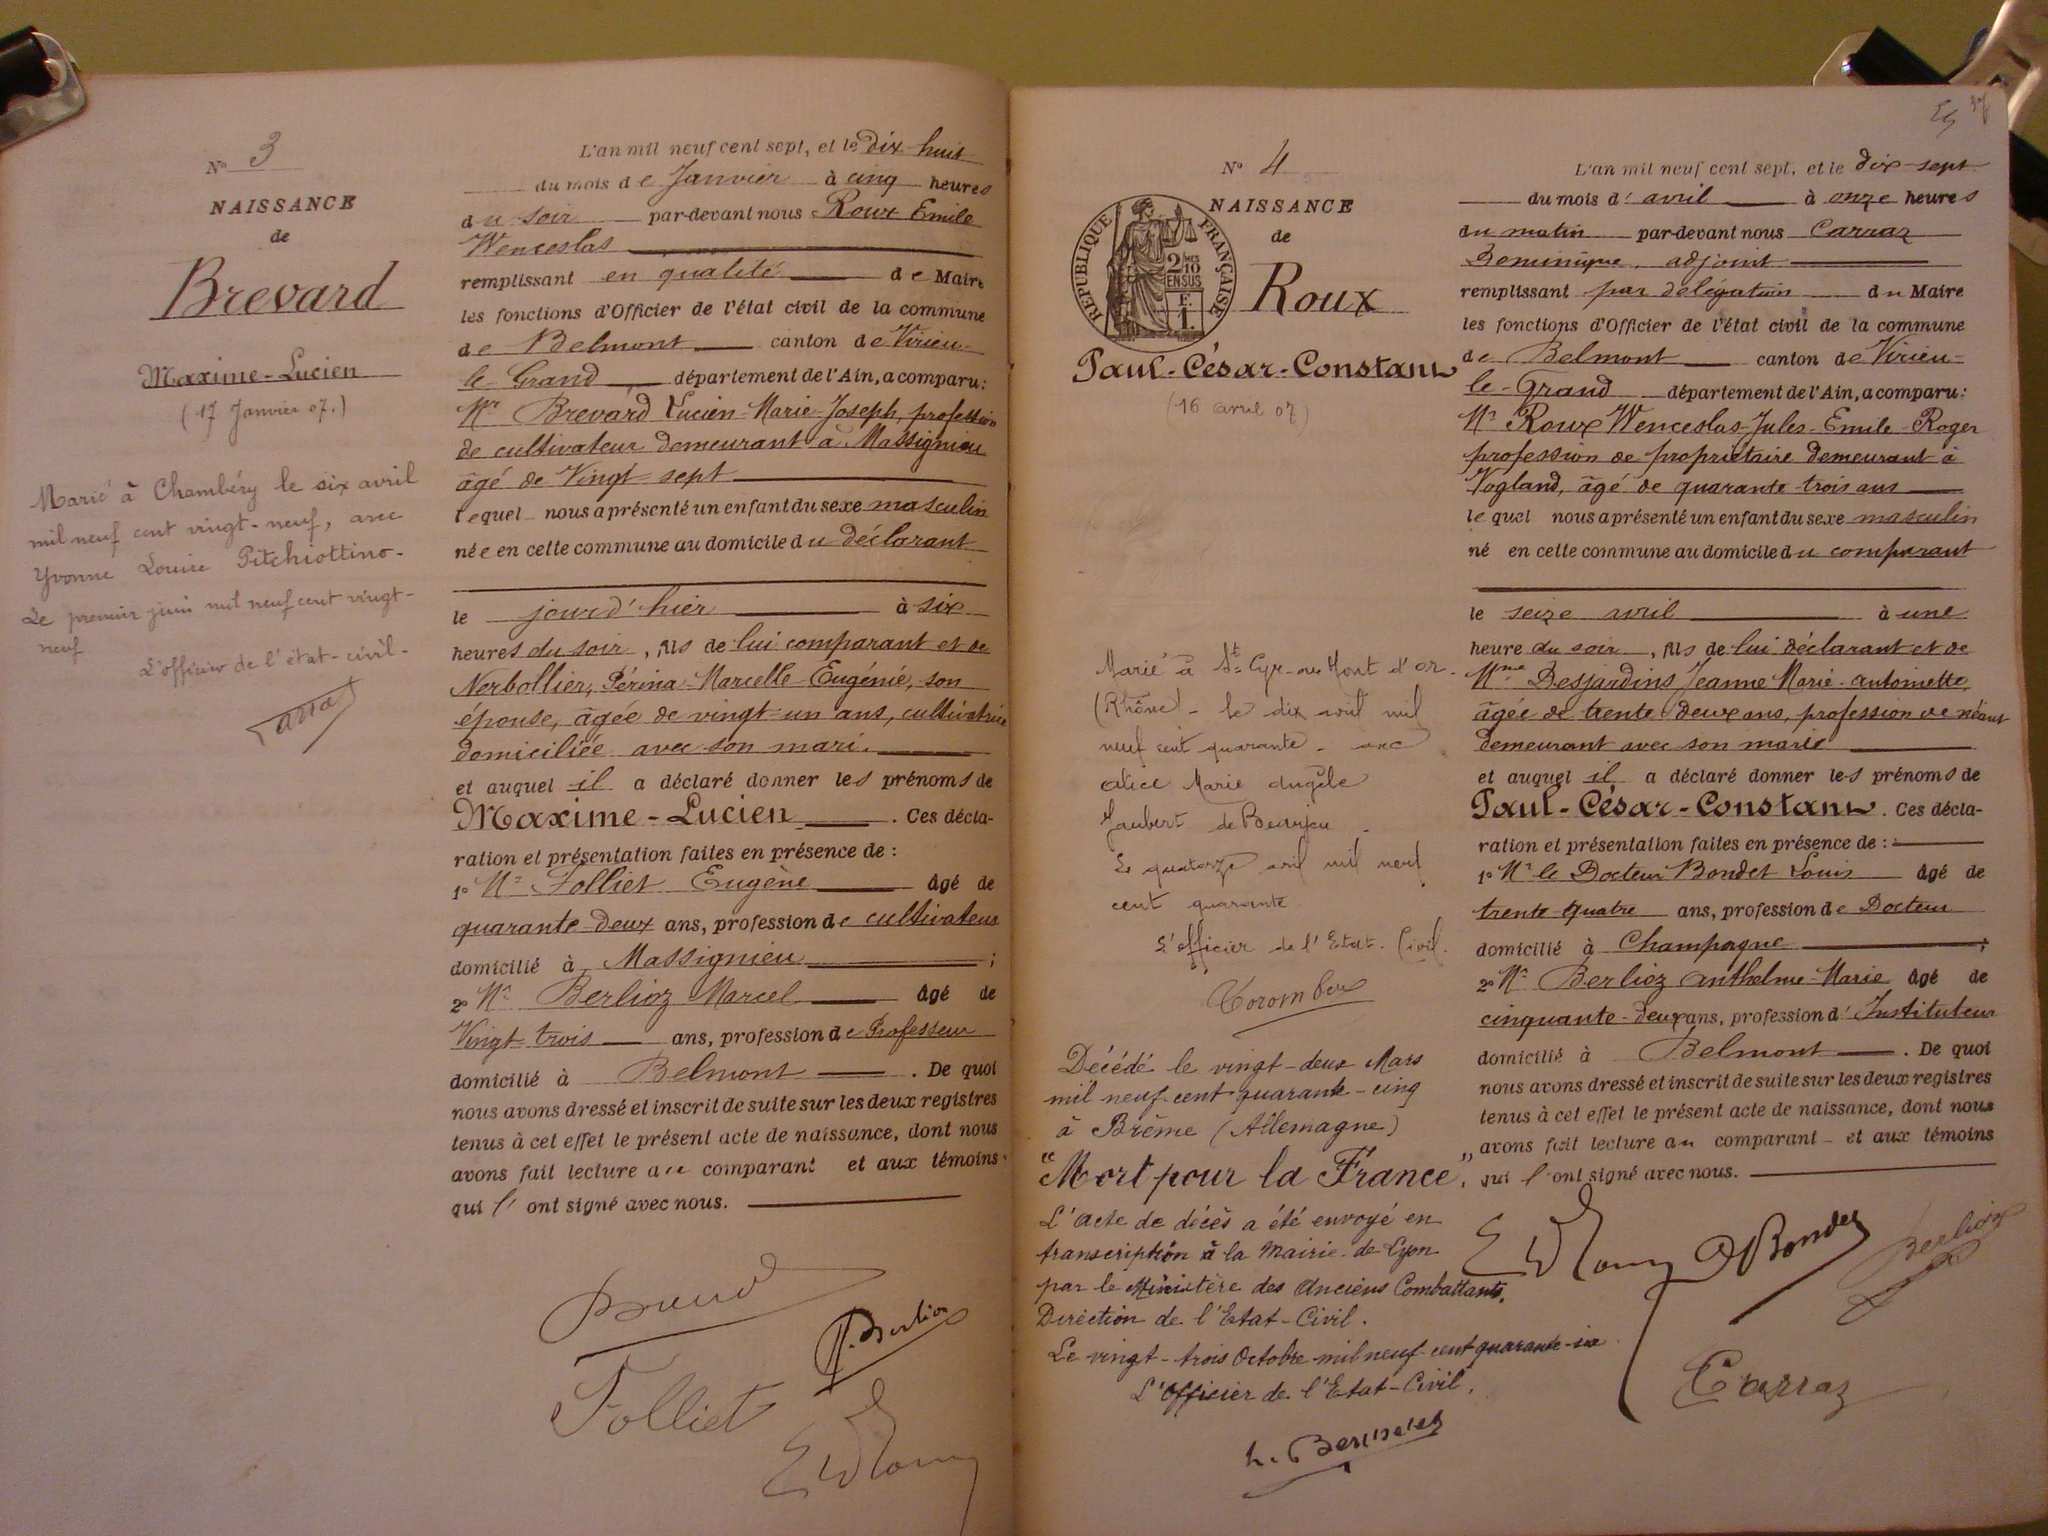 N° 3
NAISSANCE
de
Brevard
Maxime-Lucien
(17 Janvier 07.)
Marié à Chambéry le six avril
mil neuf cent vingt-neuf, avec
Yvonne Louise Pitchiottino-
Le premier juin mil neuf cent vingt-
neuf
L'officier de l'état-civil-
L'an mil neuf cent sept, et le dix huit
du mois de Janvier à cinq heures
du soir par-devant nous Roux Emile
Wenceslas
remplissant en qualité de Maire
les fonctions d'Officier de l'état civil de la commune
de Belmont canton de Virieu-
le Grand département de l'Ain, a comparu:
Mr Brevard Lucien-Marie-Joseph, profession
de cultivateur demeurant à Massignieu
âgé de Vingt sept
lequel nous a présenté un enfant du sexe masculin
née en cette commune au domicile du déclarant
le jourd'hier à six
heures du soir, fils de lui comparant et de
Nerbollier, Périna-Marcelle-Eugénie, son
épouse, âgée de vingt un ans, cultivatrice
domiciliée avec son mari.
et auquel il a déclaré donner les prénoms de
Maxime-Lucien. Ces décla-
ration et présentation faites en présence de :
1° Mr Folliet Eugène âgé de
quarante-deux ans, profession de cultivateur
domicilié à Massignieu ;
2° Mr Berlioz Marcel âgé de
Vingt-trois ans, profession de Professeur
domicilié à Belmont. De quoi
nous avons dressé et inscrit de suite sur les deux registres
tenus à cet effet le présent acte de naissance, dont nous
avons fait lecture au comparant et aux témoins
qui l'ont signé avec nous.
Folliet
Berlioz
N° 4
NAISSANCE
de
RÉPUBLIQUE FRANÇAISE
2/10 EN SUS
F.
1.
Roux
Paul-César-Constant
(16 avril 07)
Marié à St Cyr-au Mont d'or-
(Rhône)- le dix août mil
neuf cent quarante- avec
Alice Marie Angèle
Jaubert de Beaujeu-
Le quatorze août mil neuf
cent quarante
L'officier de l'Etat-Civil.
Décédé le vingt-deux Mars
mil neuf-cent quarante-cinq
à Brême (Allemagne)
"Mort pour la France",
L'acte de décès a été envoyé en
transcription à la Mairie de Lyon
par le Ministère des Anciens Combattants,
Direction de l'Etat-Civil.
Le vingt-trois Octobre mil neuf cent quarante-six
L'Officier de l'Etat-Civil,
L'an mil neuf cent sept, et le dix-sept
du mois d'avril à onze heures
du matin par-devant nous Carraz
Dominique, adjoint
remplissant par délégation du Maire
les fonctions d'Officier de l'état civil de la commune
de Belmont canton de Virieu-
le-Grand département de l'Ain, a comparu:
Mr Roux Wenceslas-Jules-Emile-Roger
profession de propriétaire demeurant à
Vogland, âgé de quarante-trois ans
lequel nous a présenté un enfant du sexe masculin
né en cette commune au domicile du comparant
le seize avril à une
heure du soir, fils de lui déclarant et de
Mme Desjardins Jeanne Marie-Antoinette,
âgée de trente deux ans, profession de néant
demeurant avec son marie
et auquel il a déclaré donner les prénoms de
Paul-César-Constant. Ces décla-
ration et présentation faites en présence de :
1° Mr le Docteur Bondet Louis âgé de
trente quatre ans, profession de Docteur
domicilié à Champagne ;
2° Mr Berlioz Anthelme-Marie âgé de
cinquante-deux ans, profession d'Instituteur
domicilié à Belmont. De quoi
nous avons dressé et inscrit de suite sur les deux registres
tenus à cet effet le présent acte de naissance, dont nous
avons fait lecture au comparant- et aux témoins
qui l'ont signé avec nous.
Bondet
Berlioz
Carraz